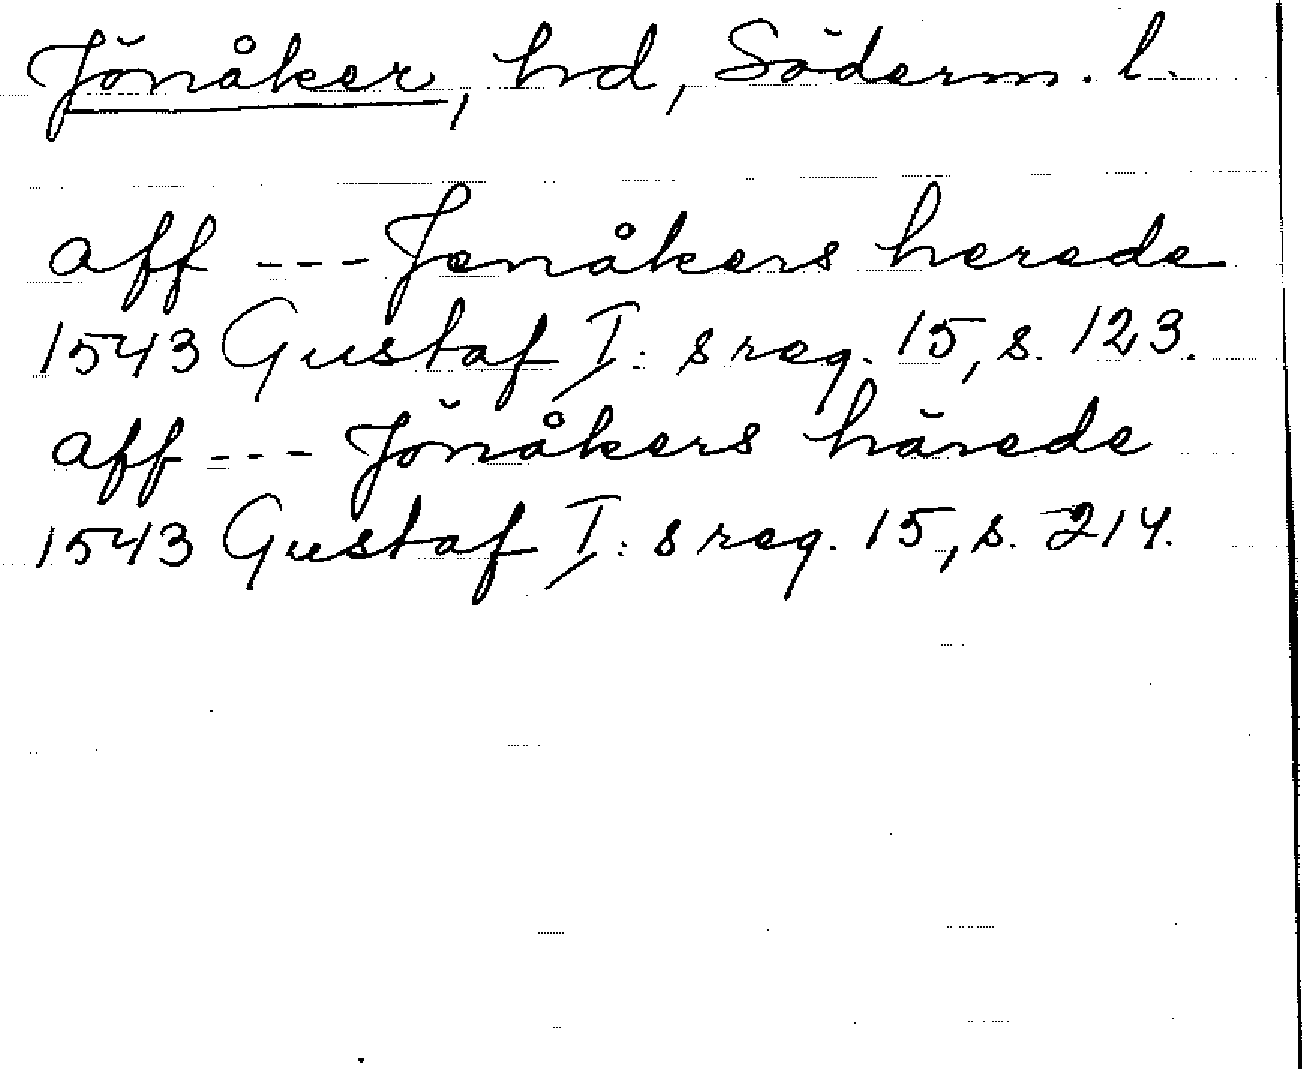 Jönåker, hd, Söderm. l.
aff --- Jenåkers herede
1543 Gustaf I: s reg. 15, s. 123.
aff --- Jönåkers härede
1543 Gustaf I: s reg. 15, s. 214.